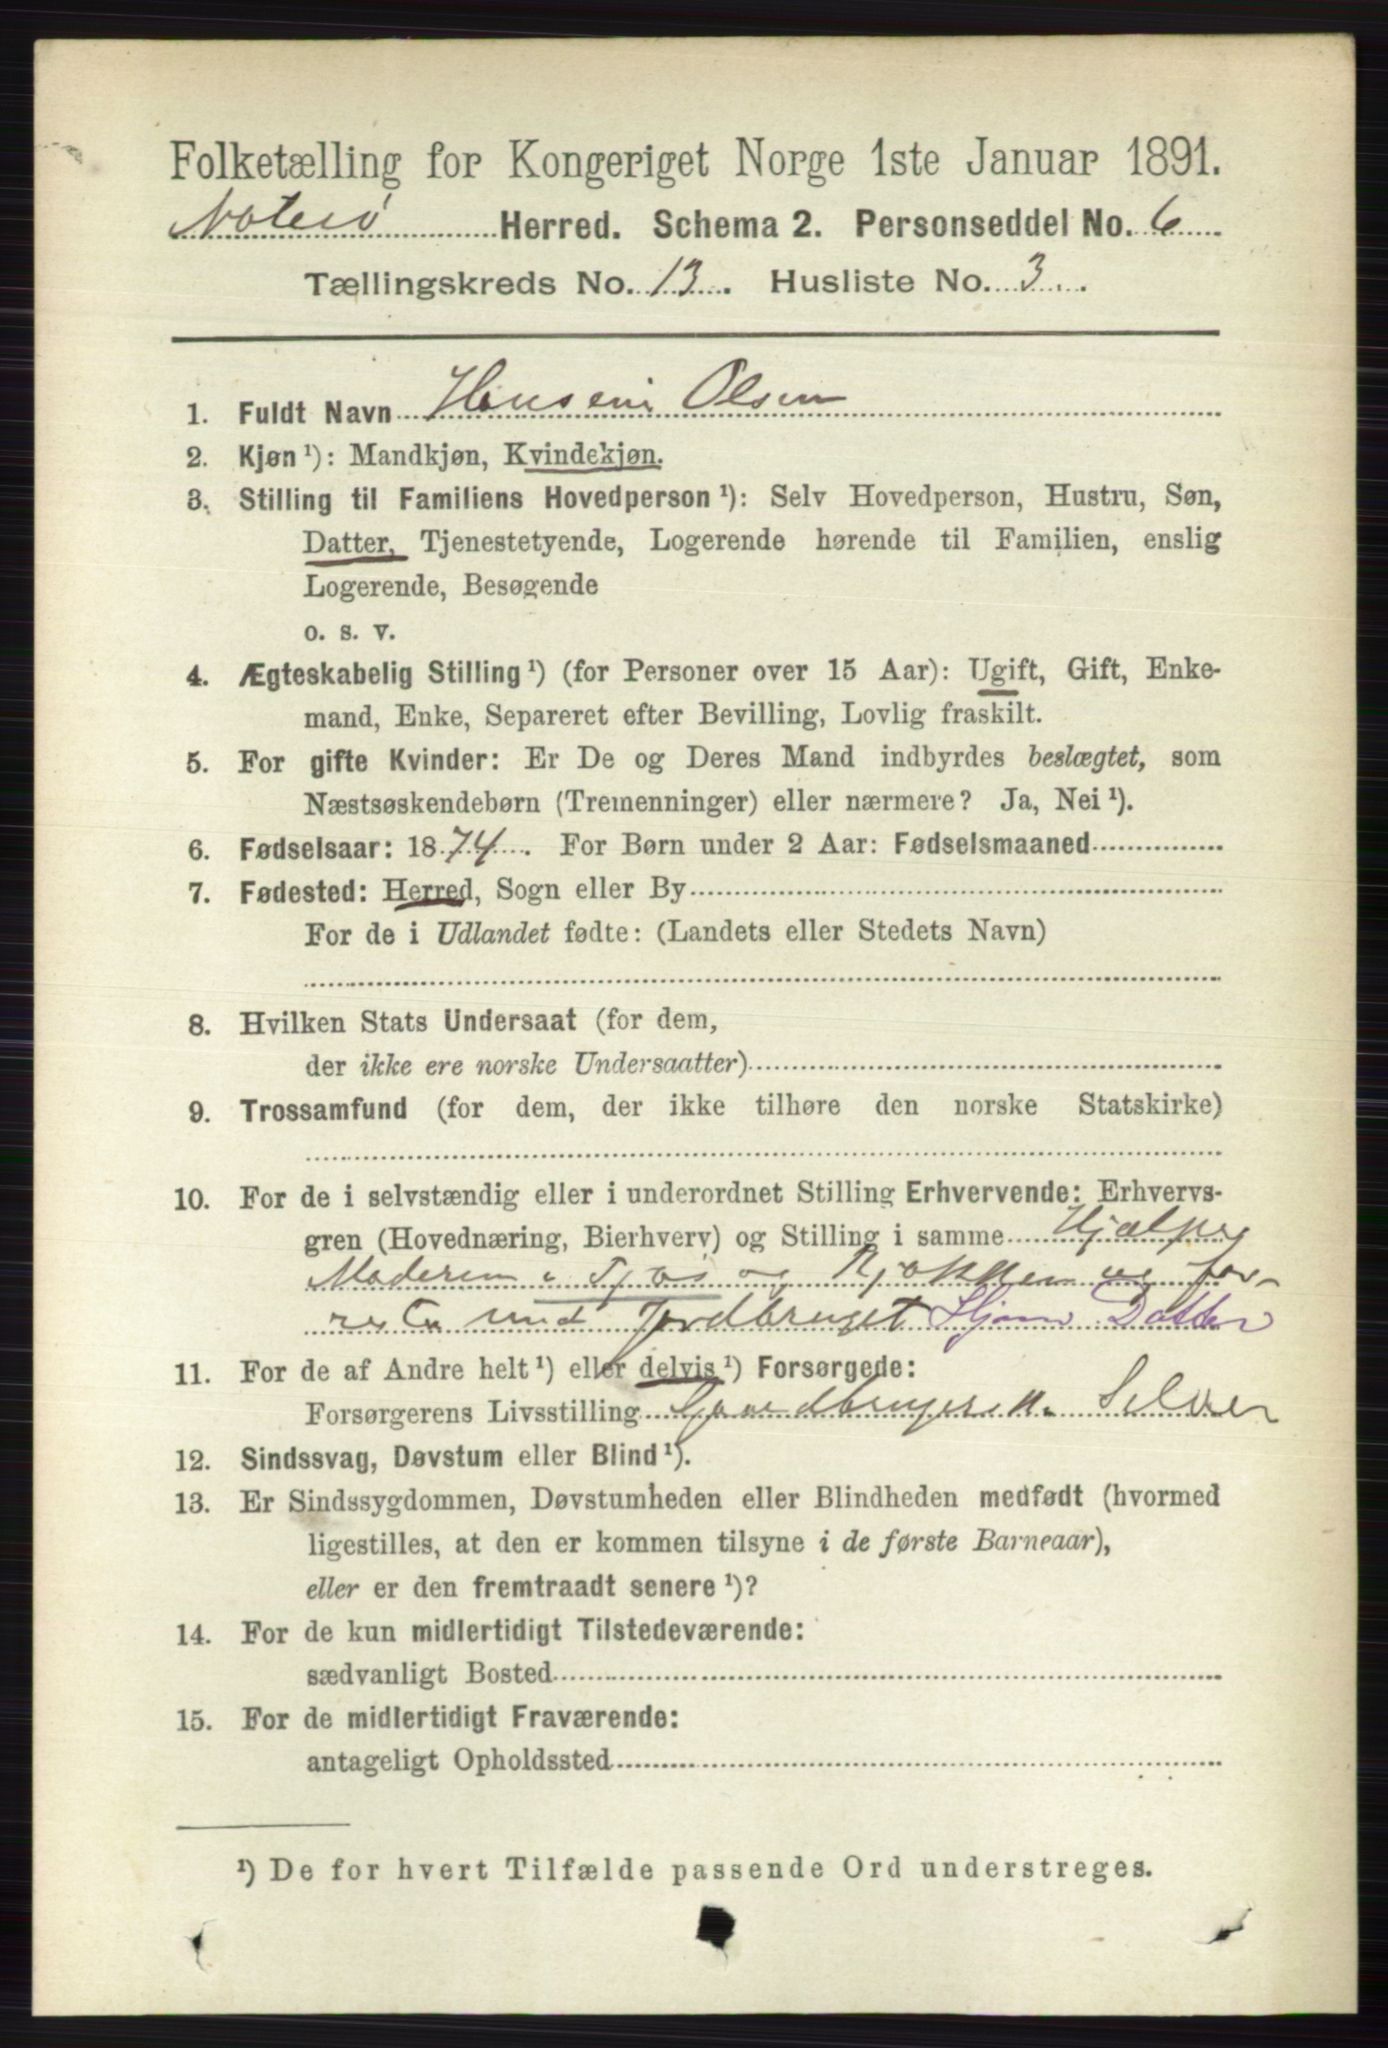 Folketælling for Kongeriget Norge 1ste Januar 1891.
Nøterø Herred. Schema 2. Personseddel No. 6
Tællingskreds No. 13. Husliste No. 3.
1. Fuldt Navn Hansine Olsen
2. Kjøn ¹): Mandkjøn, Kvindekjøn.
3. Stilling til Familiens Hovedperson ¹): Selv Hovedperson, Hustru, Søn,
Datter, Tjenestetyende, Logerende hørende til Familien, enslig
Logerende, Besøgende
o. s. v.
4. Ægteskabelig Stilling ¹) (for Personer over 15 Aar): Ugift, Gift, Enke-
mand, Enke, Separeret efter Bevilling, Lovlig fraskilt.
5. For gifte Kvinder: Er De og Deres Mand indbyrdes beslægtet, som
Næstsøskendebørn (Tremenninger) eller nærmere? Ja, Nei ¹).
6. Fødselsaar: 1874. For Børn under 2 Aar: Fødselsmaaned
7. Fødested: Herred, Sogn eller By
For de i Udlandet fødte: (Landets eller Stedets Navn)
8. Hvilken Stats Undersaat (for dem,
der ikke ere norske Undersaatter)
9. Trossamfund (for dem, der ikke tilhøre den norske Statskirke)
10. For de i selvstændig eller i underordnet Stilling Erhvervende: Erhvervs-
gren (Hovednæring, Bierhverv) og Stilling i samme Hjælper
Moderen i Fjøs og Kjøkken og for-
resten med Jordbruget Hjem. Datter
11. For de af Andre helt ¹) eller delvis ¹) Forsørgede:
Forsørgerens Livsstilling Selveer
12. Sindssvag, Døvstum eller Blind ¹).
13. Er Sindssygdommen, Døvstumheden eller Blindheden medfødt (hvormed
ligestilles, at den er kommen tilsyne i de første Barneaar),
eller er den fremtraadt senere ¹)?
14. For de kun midlertidigt Tilstedeværende:
sædvanligt Bosted
15. For de midlertidigt Fraværende:
antageligt Opholdssted
¹) De for hvert Tilfælde passende Ord understreges.